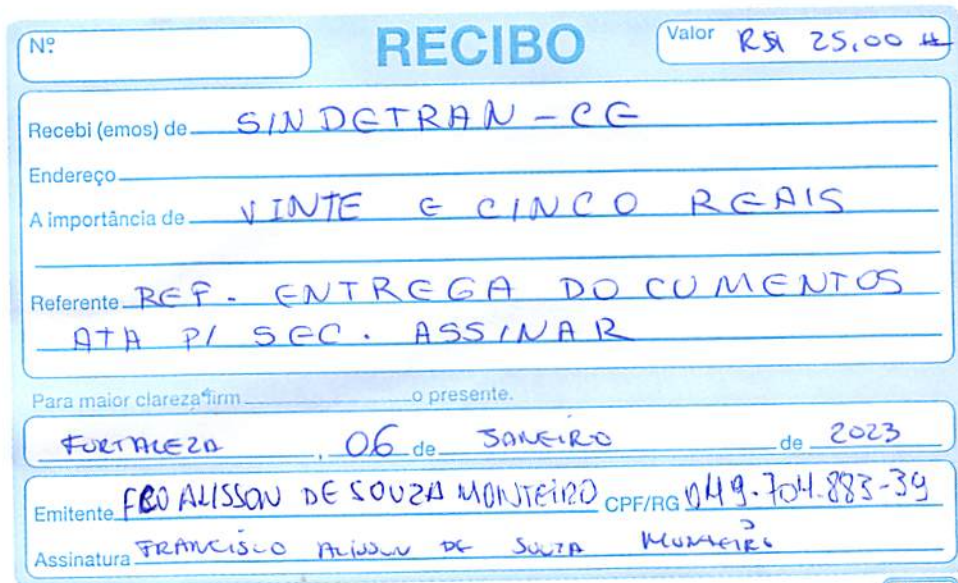 Nº RECIBO Valor R$ 25,00
Recebi (emos) de SINDETRAN - CE
Endereço
A importância de VINTE E CINCO REAIS
Referente REF. ENTREGA DOCUMENTOS
ATA P/ SEC. ASSINAR
Para maior clareza firm o presente.
FORTALEZA, 06 de JANEIRO de 2023
Emitente FCO ALISSON DE SOUZA MONTEIRO CPF/RG 049.704.883-39
Assinatura FRANCISCO ALISSON DE SOUZA MONTEIRO